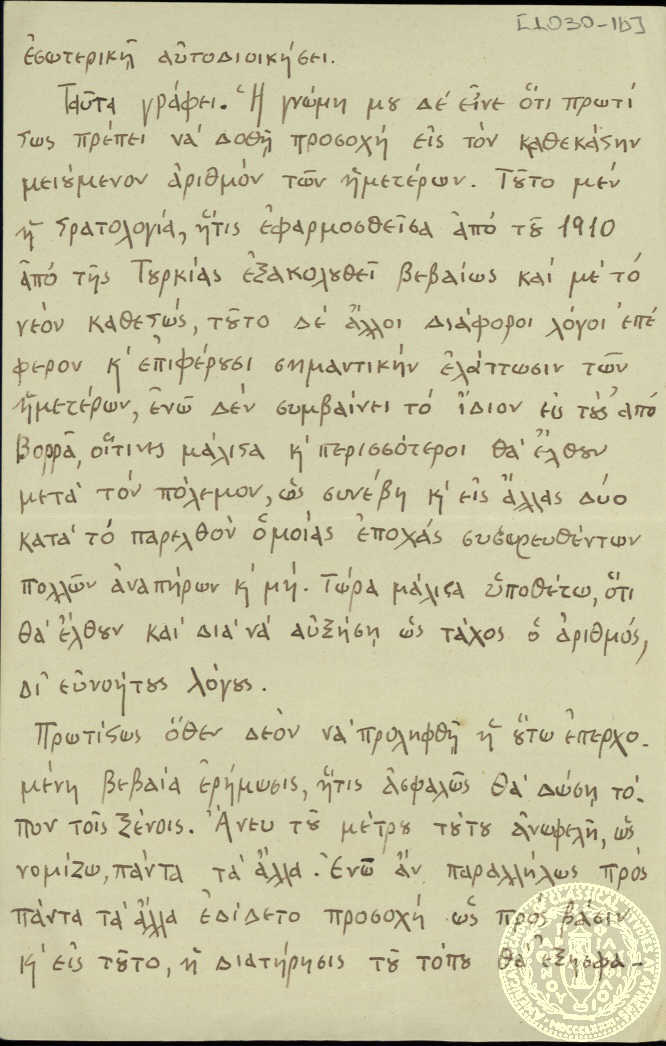 [1030-1b]
ἐσωτερικῇ αὐτοδιοικήσει.
Ταῦτα γράφει. Ἡ γνώμη μȣ δέ εἶνε ὅτι πρωτί
ϛως πρέπει νά δοθῇ προσοχή εἰς τόν καθεκάϛην
μειȣ́μενον ἀριθμόν τῶν ἡμετέρων. Τȣ͂το μέν
ἡ ϛρατολογία, ἥτις ἐφαρμοσθεῖσα ἀπό τȣ͂ 1910
ἀπό τῆς Τȣρκίας ἐξακολȣθεῖ βεβαίως καί μέ τό
νέον καθεϛώς, τȣ͂το δέ ἄλλοι διάφοροι λόγοι ἐπέ
φερον κ' ἐπιφέρȣσι σημαντικήν ἐλάττωσιν τῶν
ἡμετέρων, ἐνῶ δέν συμβαίνει τό ἴδιον εἰς τȣ́ς ἀπό
Βορρᾶ, οἵτινες μάλιϛα κ' περισσότεροι θά ἔλθȣν
μετά τόν πόλεμον, ὡς συνέβη κ' εἰς ἄλλας δύο
κατά τό παρελθόν ὁμοίας ἐποχάς συσσωρευθέντων
πολλῶν ἀναπήρων κ' μή. Τώρα μάλιϛα ὑποθέτω, ὅτι
θά ἔλθȣν καί διά νά αὐξήσῃ ὡς τάχος ὁ ἀριθμός,
δι' εὐνοήτȣς λόγȣς.
Πρωτίϛως ὅθεν δέον νά προληφθῇ ἡ ȣ́τω ἐπερχο-
μένη βεβαία ἐρήμωσις, ἥτις ἀσφαλῶς θά δώσῃ τό-
πον τοῖς ξένοις. Ἄνευ τȣ͂ μέτρȣ τȣ́τȣ ἀνωφελῆ, ὡς
νομίζω, πάντα τά ἄλλα. Ἐνῶ ἄν παραλλήλως πρός
πάντα τά ἄλλα ἐδίδετο προσοχή ὡς πρός βάσιν
κ' εἰς τȣ͂το, ἡ διατήρησις τȣ͂ τόπȣ θά ἐξησφα-